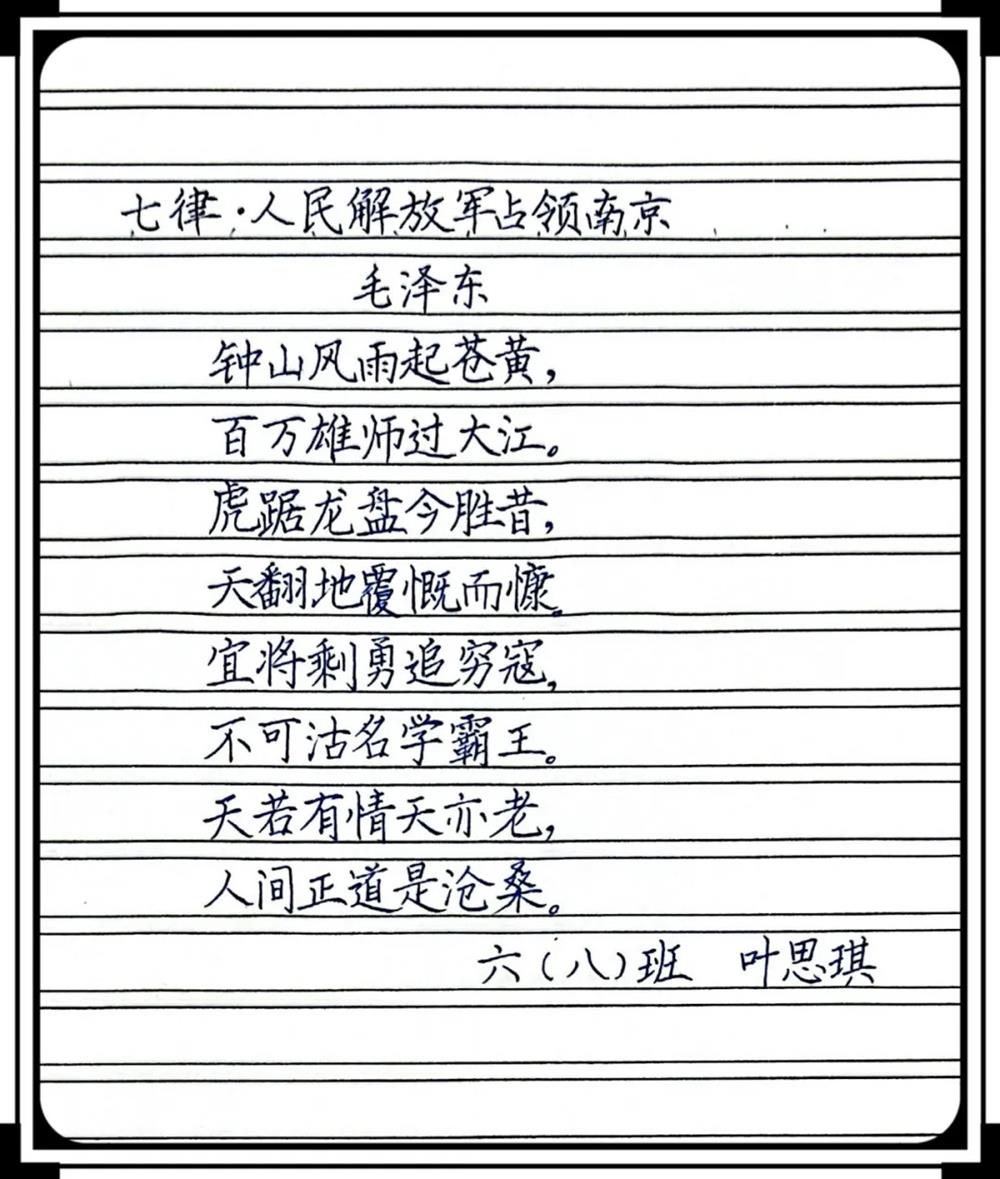 七律·人民解放军占领南京
毛泽东
钟山风雨起苍黄，
百万雄师过大江。
虎踞龙盘今胜昔，
天翻地覆慨而慷。
宜将剩勇追穷寇，
不可沽名学霸王。
天若有情天亦老，
人间正道是沧桑。
六（八）班 叶思琪